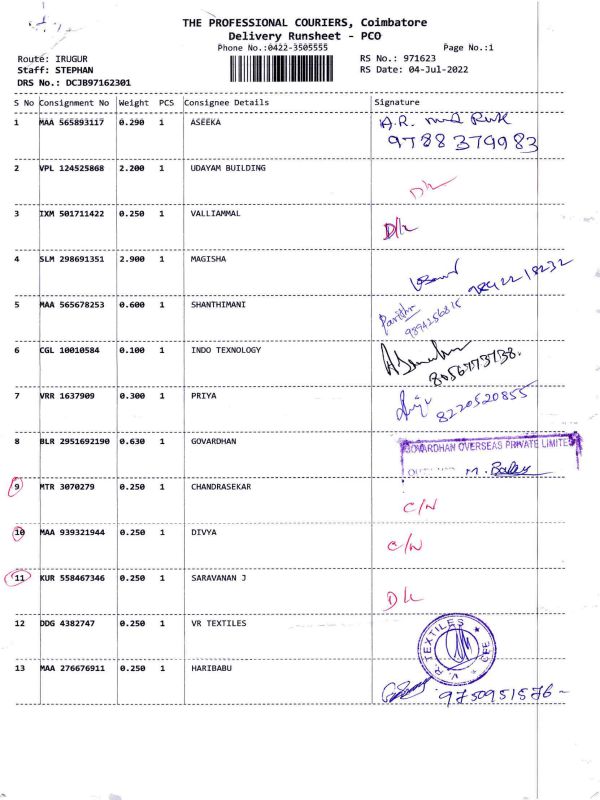 THE PROFESSIONAL COURIERS, Coimbatore
Delivery Runsheet - PCO
Phone No.:0422-3505555 Page No.:1
Route: IRUGUR RS No.: 971623
Staff: STEPHAN RS Date: 04-Jul-2022
DRS No.: DCJB97162301
S No Consignment No Weight PCS Consignee Details Signature
1 MAA 565893117 0.290 1 ASEEKA A.R.
9788379983
2 VPL 124525868 2.200 1 UDAYAM BUILDING D/L
3 IXM 501711422 0.250 1 VALLIAMMAL D/L
4 SLM 298691351 2.900 1 MAGISHA
5 MAA 565678253 0.600 1 SHANTHIMANI
6 CGL 10010584 0.100 1 INDO TEXNOLOGY
8056773738.
7 VRR 1637909 0.300 1 PRIYA
8220520855
8 BLR 2951692190 0.630 1 GOVARDHAN GOVARDHAN OVERSEAS PRIVATE LIMITE
M.
9 MTR 3070279 0.250 1 CHANDRASEKAR C/N
10 MAA 939321944 0.250 1 DIVYA C/N
11 KUR 558467346 0.250 1 SARAVANAN J D/L
12 DDG 4382747 0.250 1 VR TEXTILES V.R.TEXTILES * CBE *
13 MAA 276676911 0.250 1 HARIBABU
9750951576